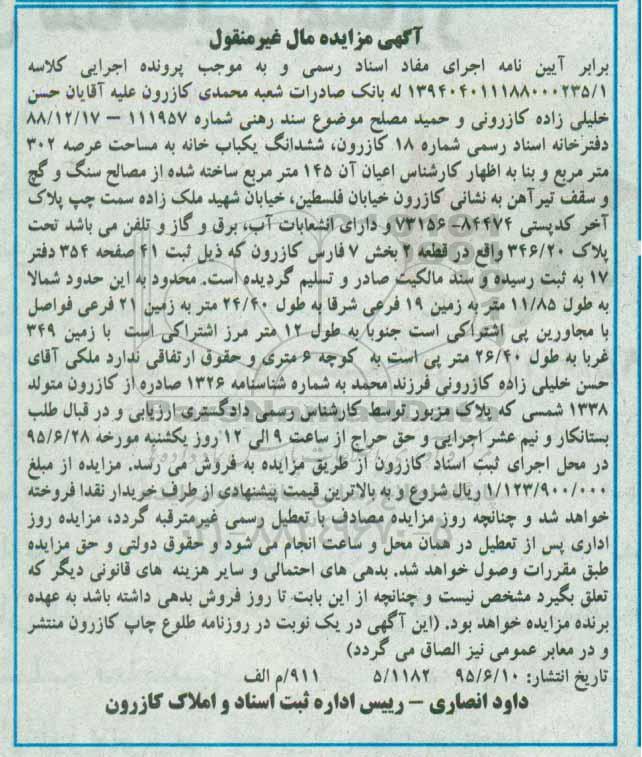 آگهی مزایده مال غیرمنقول
برابر آیین نامه اجرای مفاد اسناد رسمی و به موجب پرونده اجرایی کلاسه
۱۳۹۴۰۴۰۱۱۱۸۸۰۰۰۲۳۵/۱ له بانک صادرات شعبه محمدی کازرون علیه آقایان حسن
خلیلی زاده کازرونی و حمید مصلح موضوع سند رهنی شماره ۱۱۱۹۵۷ – ۸۸/۱۲/۱۷
دفترخانه اسناد رسمی شماره ۱۸ کازرون، ششدانگ یکباب خانه به مساحت عرصه ۳۰۲
متر مربع و بنا به اظهار کارشناس اعیان آن ۱۴۵ متر مربع ساخته شده از مصالح سنگ و گچ
و سقف تیرآهن به نشانی کازرون خیابان فلسطین، خیابان شهید ملک زاده سمت چپ پلاک
آخر کدپستی ۸۴۴۷۴–۷۳۱۵۶ و دارای انشعابات آب، برق و گاز و تلفن می باشد تحت
پلاک ۳۴۶/۲۰ واقع در قطعه ۲ بخش ۷ فارس کازرون که ذیل ثبت ۴۱ صفحه ۳۵۴ دفتر
۱۷ به ثبت رسیده و سند مالکیت صادر و تسلیم گردیده است. محدود به این حدود شمالا
به طول ۱۱/۸۵ متر به زمین ۱۹ فرعی شرقا به طول ۲۴/۴۰ متر به زمین ۲۱ فرعی فواصل
با مجاورین پی اشتراکی است جنوبا به طول ۱۲ متر مرز اشتراکی است با زمین ۳۴۹
غربا به طول ۲۶/۴۰ متر پی است به کوچه ۶ متری و حقوق ارتفاقی ندارد ملکی آقای
حسن خلیلی زاده کازرونی فرزند محمد به شماره شناسنامه ۱۳۲۶ صادره از کازرون متولد
۱۳۳۸ شمسی که پلاک مزبور توسط کارشناس رسمی دادگستری ارزیابی و در قبال طلب
بستانکار و نیم عشر اجرایی و حق حراج از ساعت ۹ الی ۱۲ روز یکشنبه مورخه ۹۵/۶/۲۸
در محل اجرای ثبت اسناد کازرون از طریق مزایده به فروش می رسد. مزایده از مبلغ
۱/۱۲۳/۹۰۰/۰۰۰ ریال شروع و به بالاترین قیمت پیشنهادی از طرف خریدار نقدا فروخته
خواهد شد و چنانچه روز مزایده مصادف با تعطیل رسمی غیرمترقبه گردد، مزایده روز
اداری پس از تعطیل در همان محل و ساعت انجام می شود و حقوق دولتی و حق مزایده
طبق مقررات وصول خواهد شد. بدهی های احتمالی و سایر هزینه های قانونی دیگر که
تعلق بگیرد مشخص نیست و چنانچه از این بابت تا روز فروش بدهی داشته باشد به عهده
برنده مزایده خواهد بود. (این آگهی در یک نوبت در روزنامه طلوع چاپ کازرون منتشر
و در معابر عمومی نیز الصاق می گردد)
تاریخ انتشار: ۹۵/۶/۱۰ ۵/۱۱۸۲ ۹۱۱/م الف
داود انصاری – رییس اداره ثبت اسناد و املاک کازرون